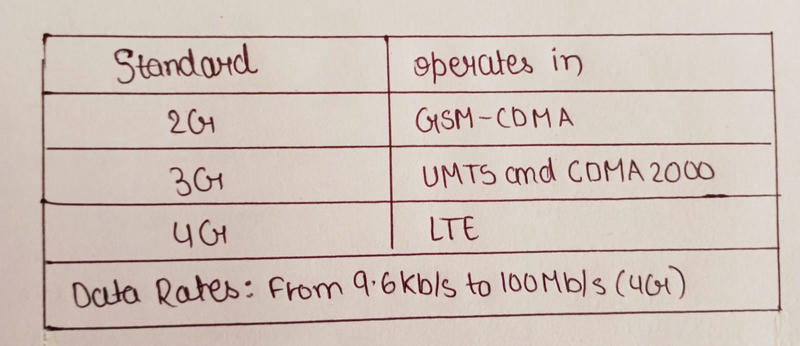 Standard operates in
2G GSM-CDMA
3G UMTS and CDMA2000
4G LTE
Data Rates: From 9.6Kb/s to 100Mb/s (4G)